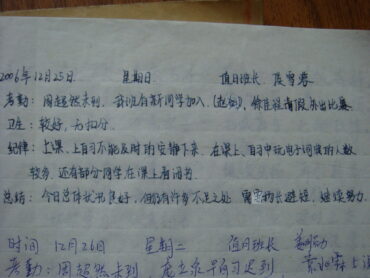 2006年12月25日 星期日 值日班长:
考勤: 周超然未到. 我班有新同学加入.(赵剑). 请假外出比赛
卫生: 较好, 无扣分.
纪律: 上课、上自习不能及时的安静下来. 在课上、自习中玩电子词典的人数
较多. 还有部分同学在课上看闲书.
总结: 今日总体状况良好, 但仍有许多不足之处. 需要扬长避短, 继续努力.
时间 12月26日 星期二 值日班长
考勤: 周超然未到 早自习迟到